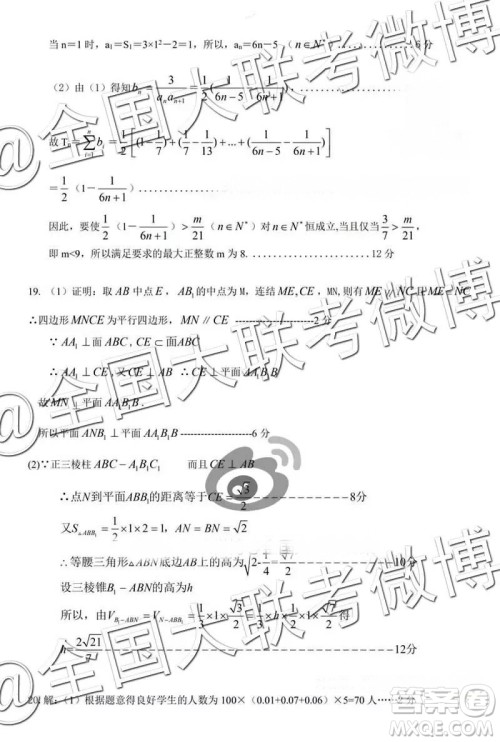 当 n＝1时，a₁=S₁=3×1²－2=1，所以，aₙ=6n－5 （n∈N*）………6分
（2）由（1）得知 bₙ = 3/(aₙaₙ₊₁) = 1/2(1/(6n－5) － 1/(6n+1))………
故 Tₙ = ∑ᵢ₌₁ⁿ bᵢ = 1/2[(1－1/7)+(1/7－1/13)+...+(1/(6n－5)－1/(6n+1))]
= 1/2（1－1/(6n+1)）....................
因此，要使 1/2（1－1/(6n+1)）> m/21 （n∈N*）对 n∈N* 恒成立,当且仅当 3/7 > m/21,
即 m<9，所以满足要求的最大正整数 m 为 8. ....................12分
19.（1）证明：取 AB 中点 E， AB₁的中点为 M，连结 ME,CE，MN,则有 ME∥NC 且 ME=NC
∴四边形 MNCE 为平行四边形， MN∥CE ------------------2分
∵ AA₁⊥面 ABC, CE⊂面ABC,
∴ AA₁⊥CE，又 CE⊥AB ∴CE⊥平面 AA₁B₁B
故 MN⊥平面 AA₁B₁B.
所以平面 ANB₁⊥平面 AA₁B₁B -------------------6分
(2)∵正三棱柱 ABC－A₁B₁C₁ 而且 CE⊥AB
∴点N到平面ABB₁的距离等于CE = √3/2 --------------8分
又S△ABB₁ = 1/2×1×2=1, AN=BN=√2
∴等腰三角形△ABN底边AB上的高为√(2-1/4)=√7/2 --------10分
设三棱锥B₁－ABN的高为h
所以，由V_{B₁－ABN} = V_{N－ABB₁} = 1/3×1×√3/2 = 1/3×h×1/2×1×√7/2 得
h = 2√21/7 ------------------------12分
20. 解：（1）根据题意得良好学生的人数为 100×（0.01+0.07+0.06）×5=70 人……2分
@全国大联考微博